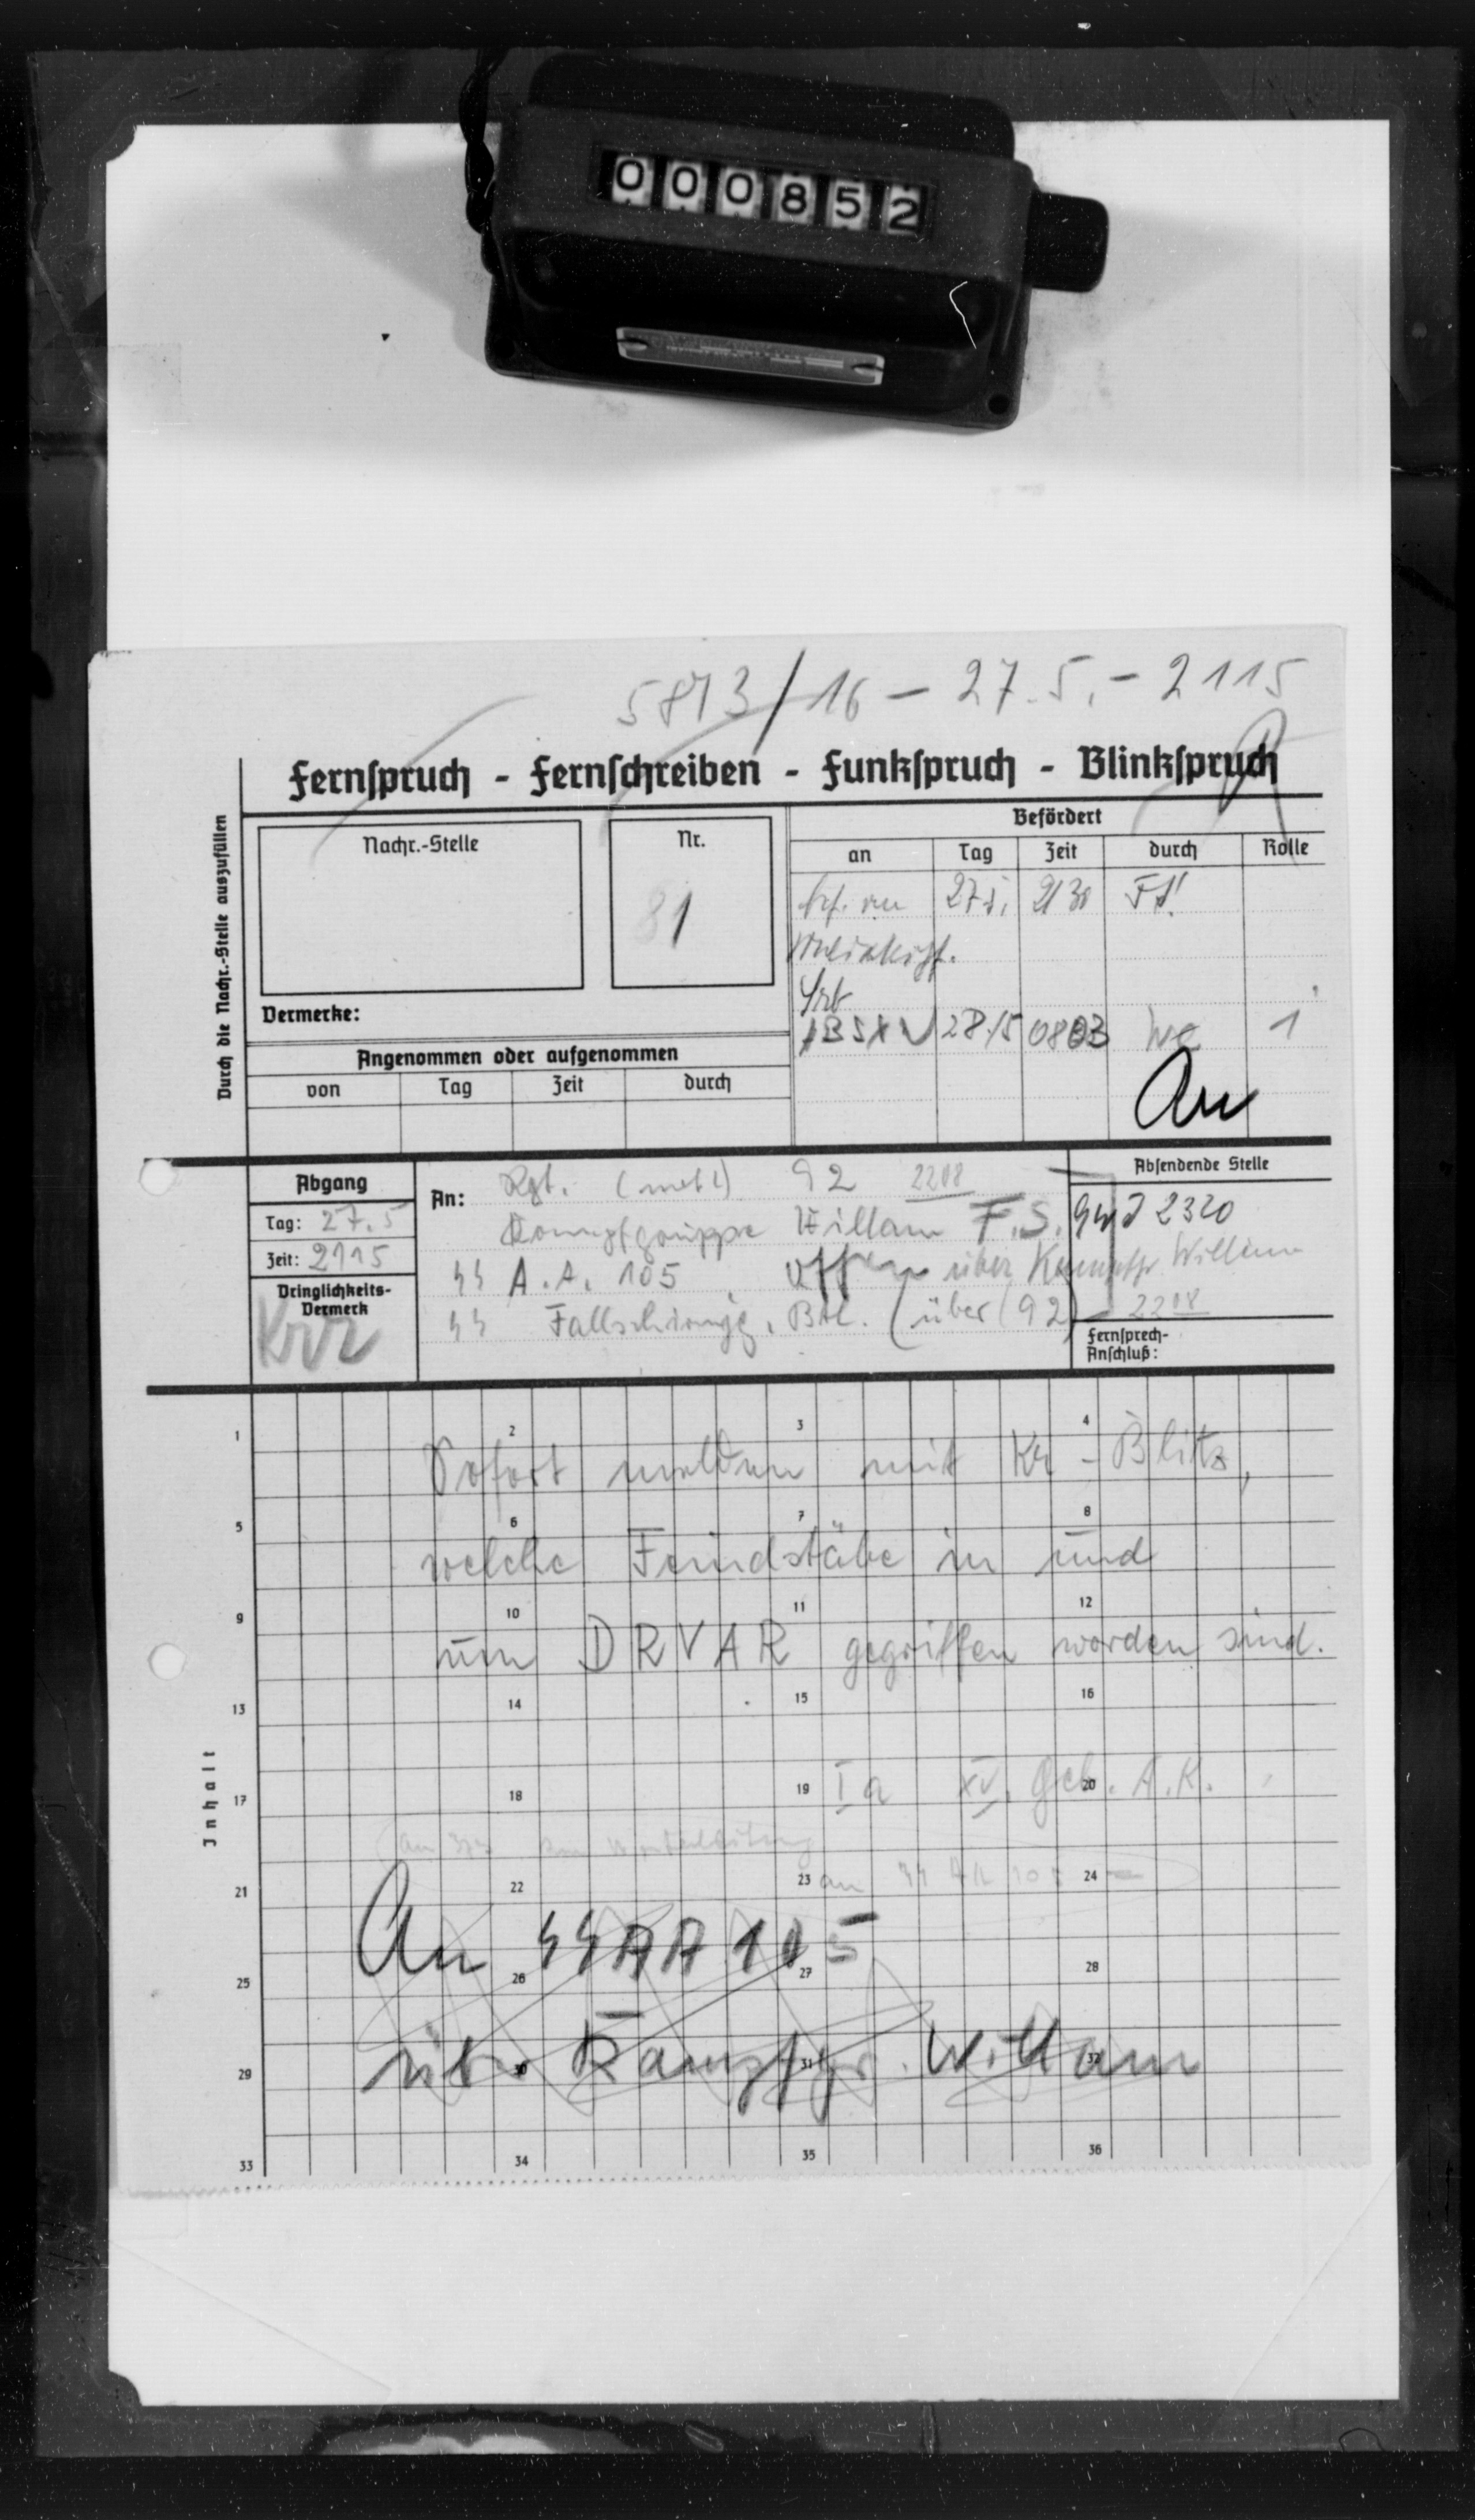 000852
5873/16 - 27.5. - 2115
Fernspruch - Fernschreiben - Funkspruch - Blinkspruch
Durch die Nachr.-Stelle auszufüllen
Nachr.-Stelle
Nr.
81
Befördert
an Tag Zeit durch Rolle
27.5. 2130 FS!
28/5 0803 We 1
Vermerke:
Angenommen oder aufgenommen
von Tag Zeit durch
An
Abgang
Tag: 27.5
Zeit: 2115
Dringlichkeits-
Vermerk
KRZ
An: Rgt. (mot) 92 2208
Kampfgruppe Willam F.S.
SS A.A. 105 offen über Kampfgr. Willam
SS Fallschirmjg. Btl. (über (92) 2208
Absendende Stelle
2320
Fernsprech-
Anschluß:
Inhalt
1 2 3 4
Sofort melden mit Kr - Blitz,
5 6 7 8
welche Feindstäbe in und
9 10 11 12
um DRVAR gegriffen worden sind.
13 14 15 16
17 18 19 20
Ia XV. Geb. A.K.
21 22 23 24
an SS AA 105
An SS AA 105
25 26 27 28
über Kampfgr. Willam
29 30 31 32
33 34 35 36